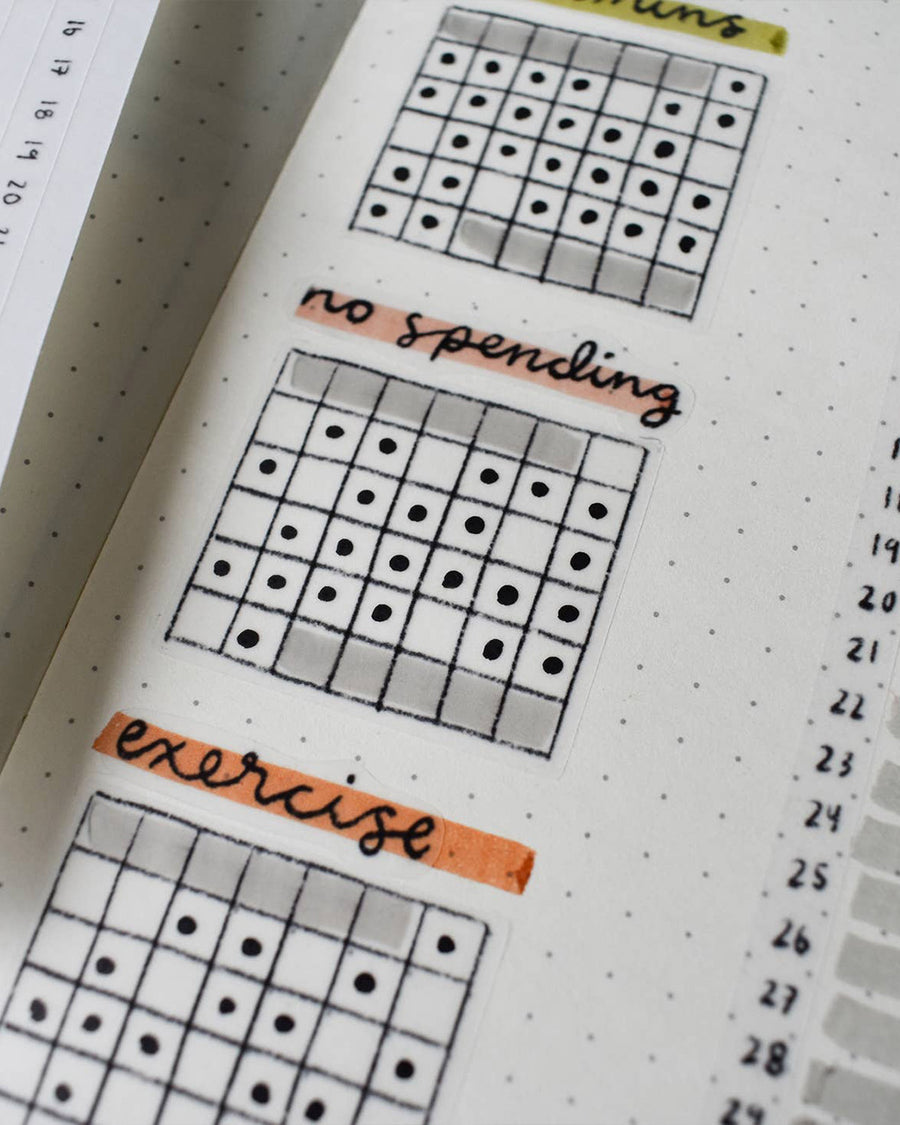 16
17
18
19
20
no spending
exercise
19
20
21
22
23
24
25
26
27
28
29